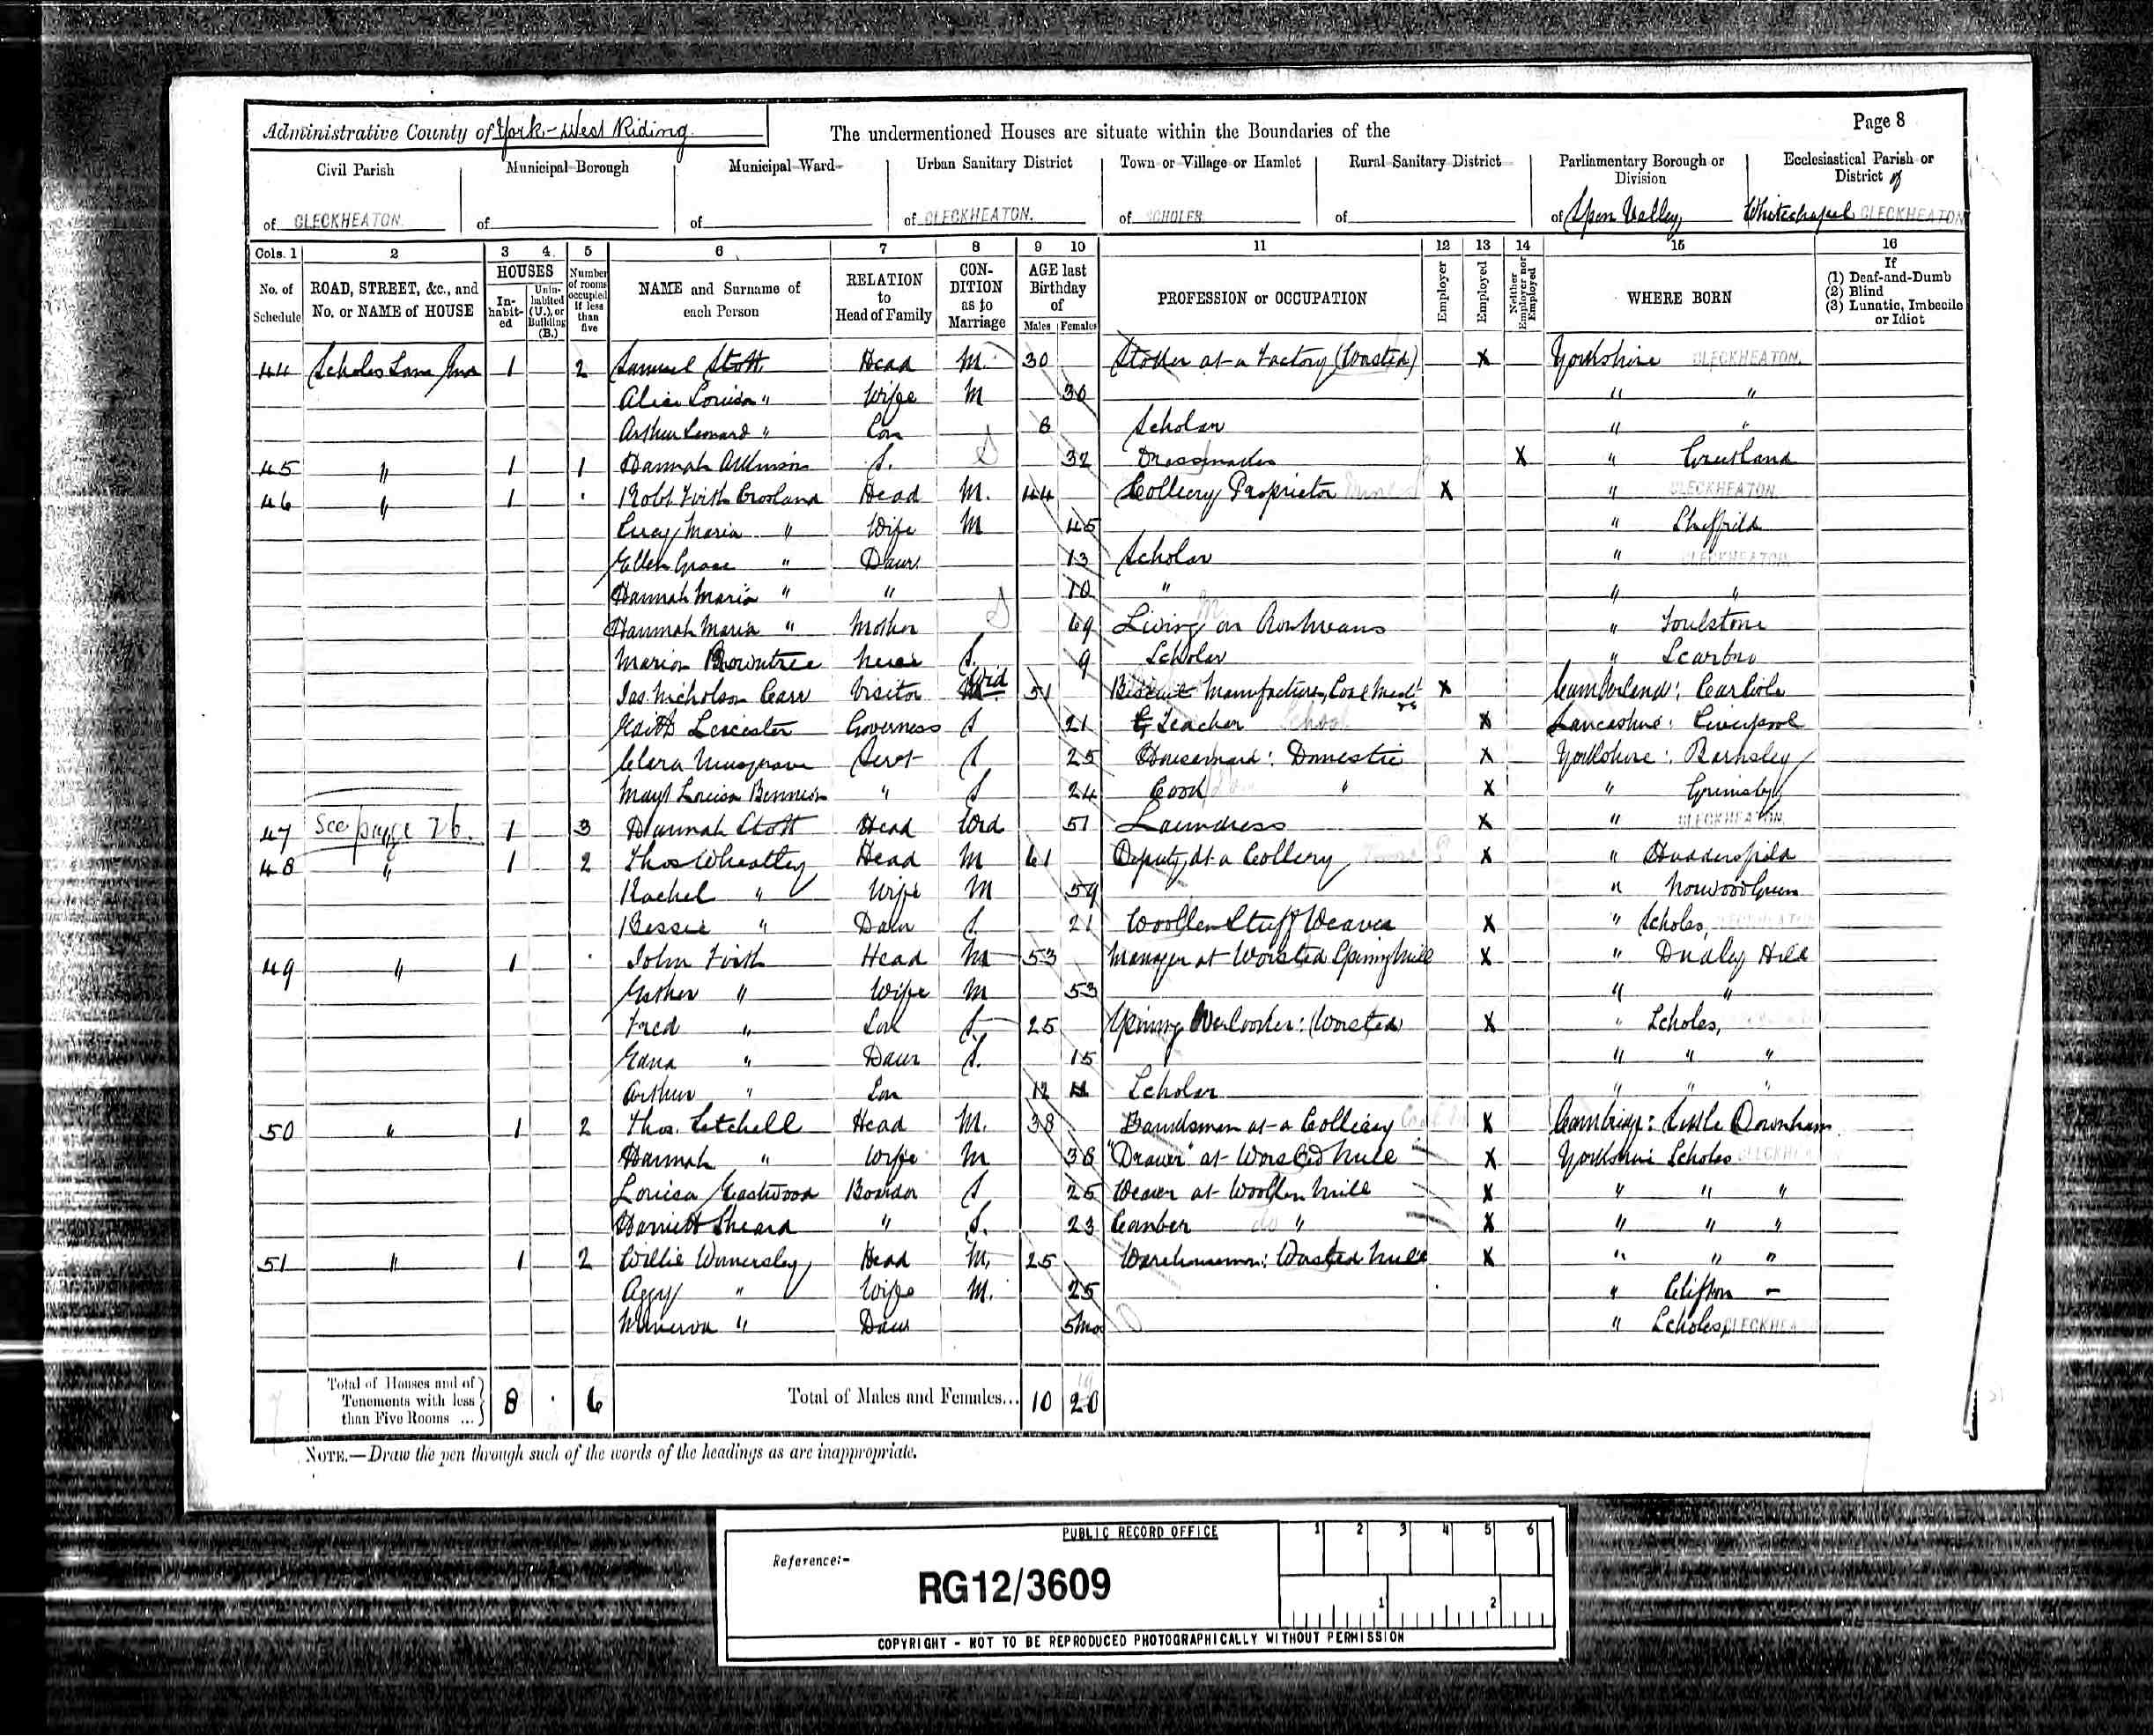 Page 8
Administrative County of York - West Riding
The undermentioned Houses are situate within the Boundaries of the
Civil Parish of CLECKHEATON
Municipal Borough of
Municipal Ward of
Urban Sanitary District of CLECKHEATON.
Town or Village or Hamlet of SCHOLES
Rural Sanitary District of
Parliamentary Borough or Division of Spen Valley
Ecclesiastical Parish or District of Whitechapel CLECKHEATON
Cols. 1 2 3 4 5 6 7 8 9 10 11 12 13 14 15 16
No. of Schedule
ROAD, STREET, &c., and No. or NAME of HOUSE
HOUSES
Inhabited
Uninhabited (U.), or Building (B.)
Number of rooms occupied if less than five
NAME and Surname of each Person
RELATION to Head of Family
CONDITION as to Marriage
AGE last Birthday of
Males Females
PROFESSION or OCCUPATION
Employer
Employed
Neither Employer nor Employed
WHERE BORN
If (1) Deaf-and-Dumb (2) Blind (3) Lunatic, Imbecile or Idiot
44 Scholes Lane 1 2 Samuel Stott Head M. 30 Stoker at a Factory (Worsted) X Yorkshire CLECKHEATON.
Alice Louisa " Wife M 30 " "
Arthur Leonard " Son 6 Scholar " "
45 " 1 1 Hannah S. 32 Dressmaker X " Greetland
46 " 1 . Robt Firth Crosland Head M. 44 Colliery Proprietor X " CLECKHEATON
Lucy Maria " Wife M 45 " Sheffield
Ellen Grace " Daur 13 Scholar " CLECKHEATON
Hannah Maria " " 10 " " "
Hannah Maria " Mother 69 Living on Own Means " Foulstone
Marion Rowntree Niece S. 9 Scholar " Scarbro
Jas. Nicholson Carr Visitor Wid 51 Biscuit Manufacturer, X Cumberland: Carlisle
Edith Leicester Governess S 21 Teacher School X Lancashire: Liverpool
Clara Musgrave Servt S 25 Housemaid: Domestic X Yorkshire: Barnsley
Mary Louisa Bennison " S 24 Cook " X " Grimsby
47 See page 26. 1 3 Hannah Stott Head Wid 51 Laundress X " CLECKHEATON.
48 " 1 2 Thos Wheatley Head M 61 Deputy at a Colliery X " Huddersfield
Rachel " Wife M 59 " Norwood Green
Bessie " Daur S. 21 Woollen Stuff Weaver X " Scholes, CLECKHEATON
49 " 1 . John Firth Head M 53 Manager at Worsted Spinng Mill X " Dudley Hill
Esther " Wife M 53 " "
Fred " Son S. 25 Spinning Overlooker: (Worsted) X " Scholes,
Edna " Daur S. 15 " " "
Arthur " Son 12 Scholar " " "
50 " 1 2 Thos. Letchell Head M. 38 Banksman at a Colliery X Cambridge: Little Downham
Hannah " Wife M 38 "Drawer" at Worsted Mill X Yorkshire Scholes CLECKHEA
Louisa Eastwood Boarder S 25 Weaver at Woollen Mill X " " "
Harriett Sheard " S. 23 do " X " " "
51 " 1 2 Willie Womersley Head M. 25 Warehouseman: Worsted Mill X " " "
Aggy " Wife M. 25 " Clifton -
Minerva " Daur 5 mo " Scholes, CLECKHEA
Total of Houses and of Tenements with less than Five Rooms ... 8 . 6 Total of Males and Females... 10 20
NOTE.—Draw the pen through such of the words of the headings as are inappropriate.
PUBLIC RECORD OFFICE
Reference:-
RG12/3609
1 2 3 4 5 6
1 2
COPYRIGHT - NOT TO BE REPRODUCED PHOTOGRAPHICALLY WITHOUT PERMISSION